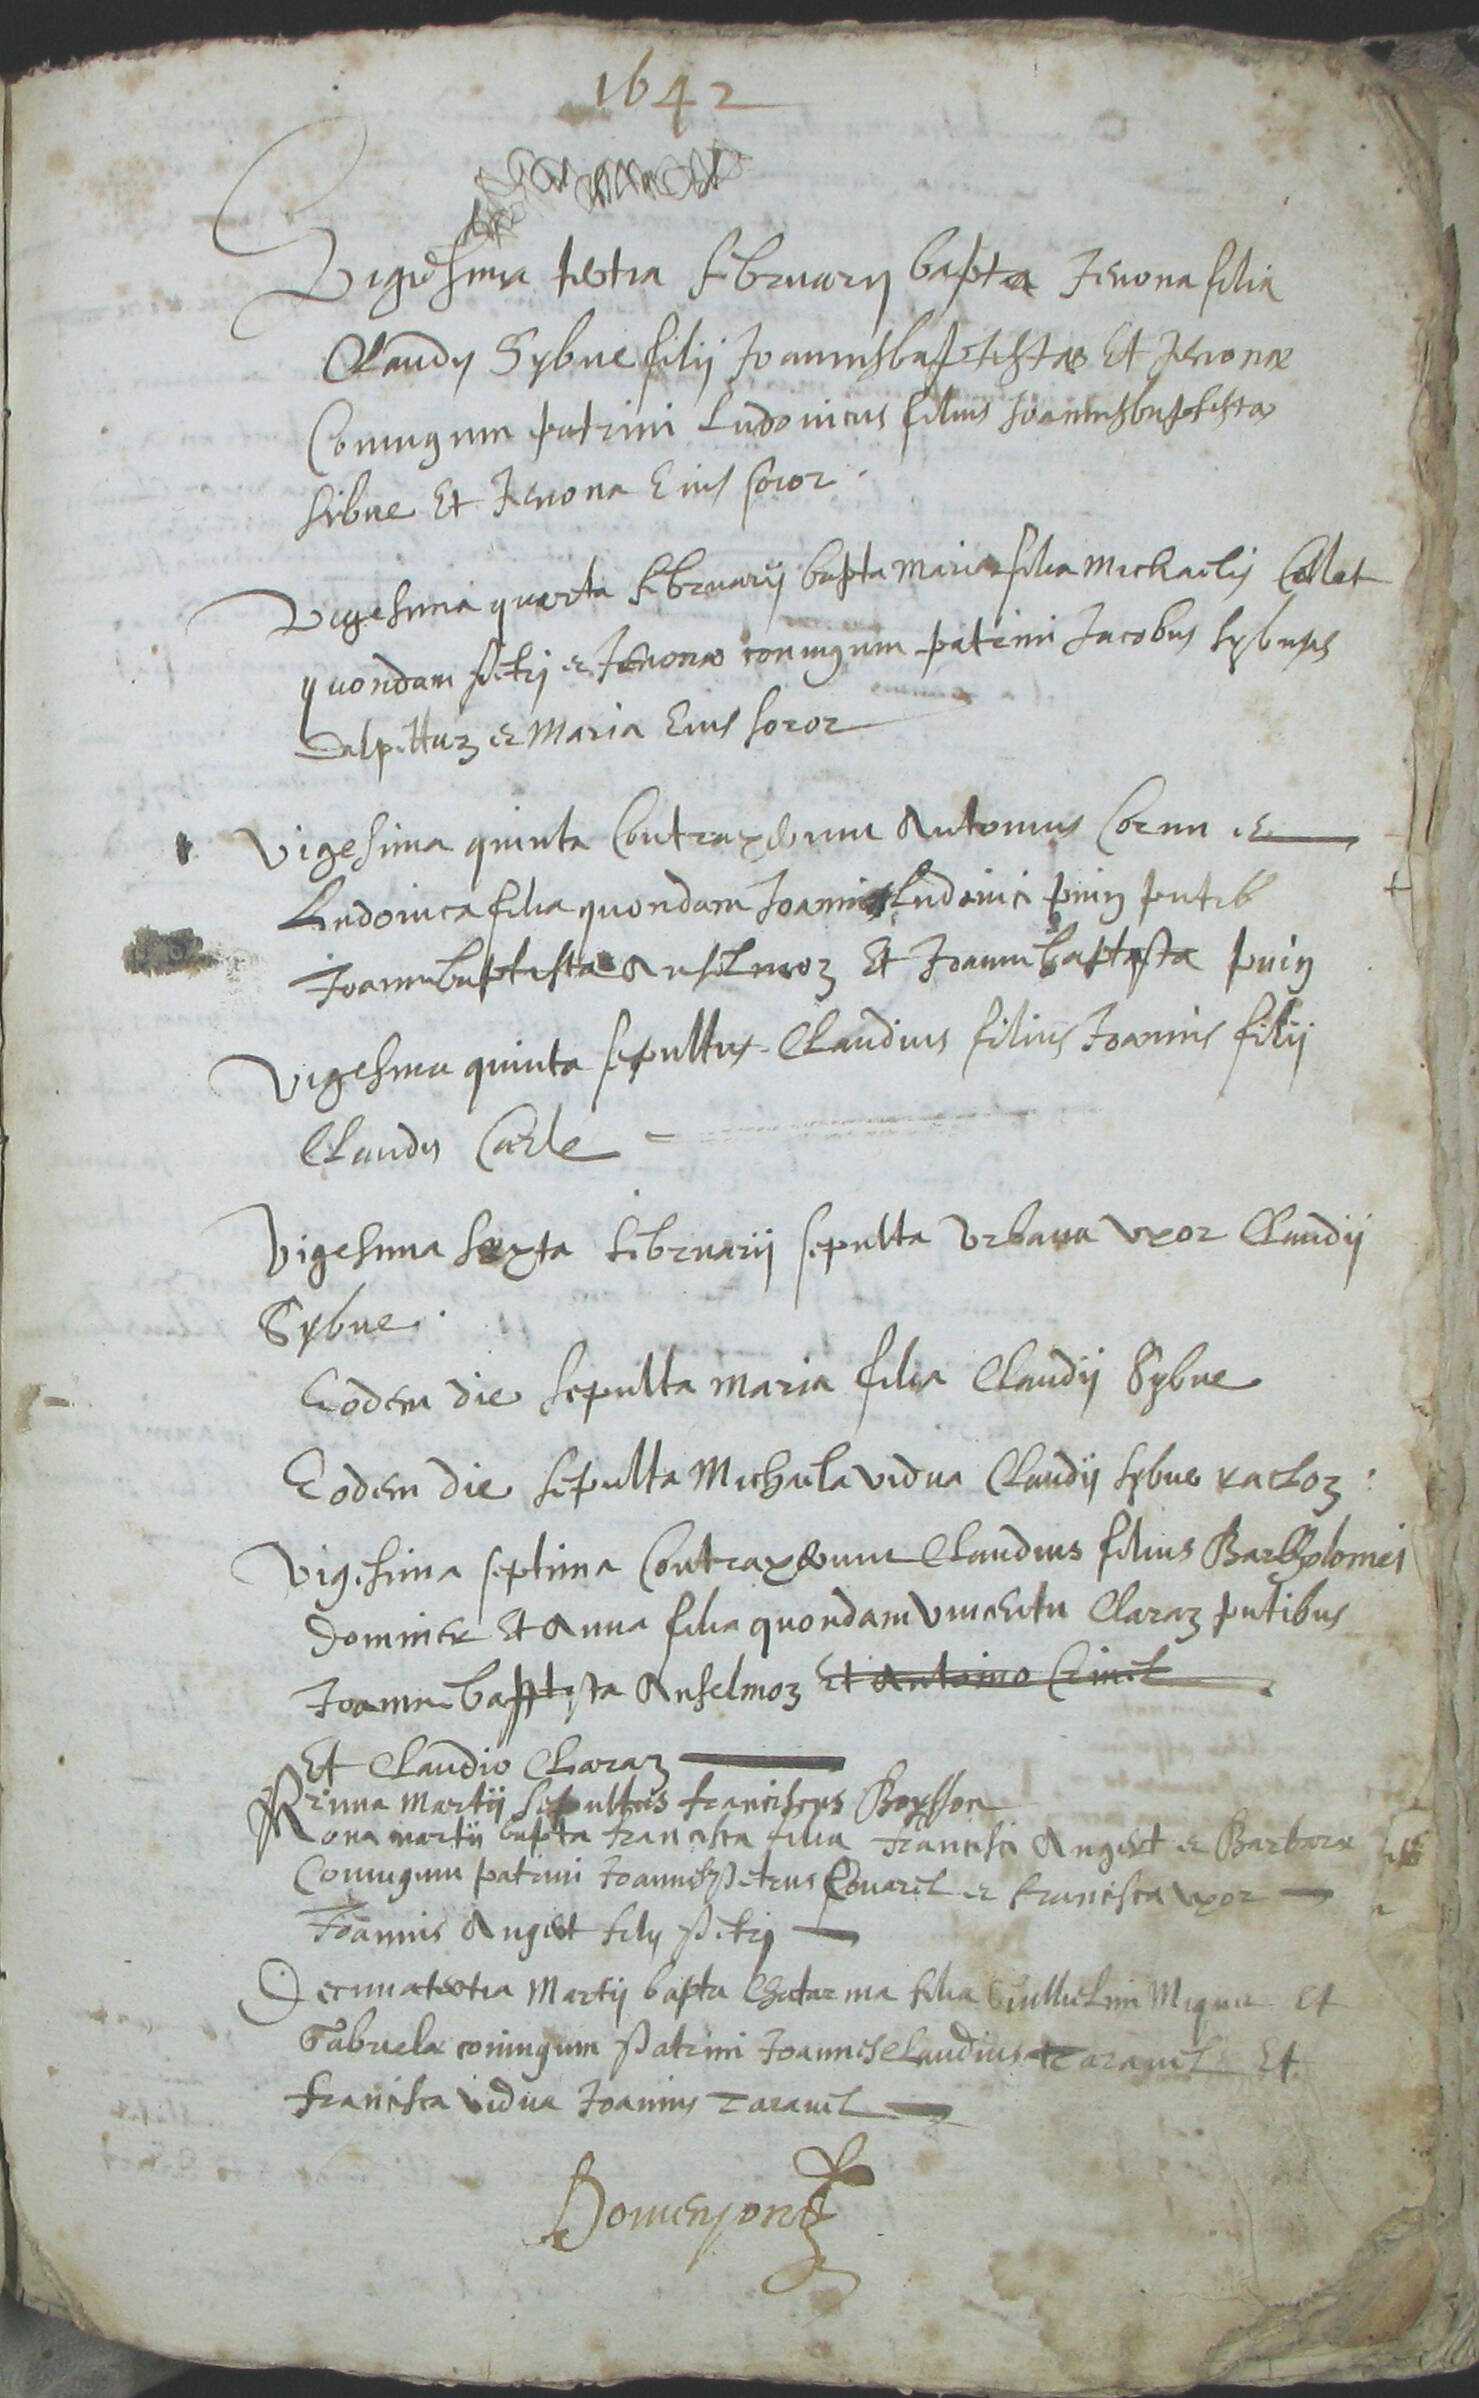 1642
Vigesima tertia februarij bapta Jenona filia
Claudij Sybue filij Joannisbaptistæ Et Jenonæ
Coniugum patrini Ludovicus filius Joannisbaptistæ
Sibue Et Jenona Eius soror.
Vigesima quarta februarij bapta Maria filia Michaelis Collet
quondam Petrj et Jenonæ coniugum patrini Jacobus
et Maria Eius soror
Vigesima quinta Contraxerunt Antonius Cornu et
Ludovica filia quondam Joannis Ludovici puig pntib
Joannebaptista Anselmoz Et Joannebaptista puig
Vigesima quinta sepultus Claudius filius Joannis filij
Claudij Carle
Vigesima sexta februarij sepulta Urbana Uxor Claudij
Sybue.
Eodem die sepulta Maria filia Claudij Sybue
Eodem die sepulta Michaela vidua Claudij Sybue
Vigesima septima Contraxerunt Claudius filius Bartholomei
Et Anna filia quondam Vincentii Claraz pntibus
Joannebaptista Anselmoz Et Antonio
Et Claudio Claraz
Prima Martij sepultus franciscus Boysson
Nona martij bapta francisca filia francisci Anget et Barbaræ
Coniugum patrini Joannes Petrus et francisca uxor
Joannis Anget filij Petrj
Decimatertia Martij bapta Chatarina filia Guillielmi Et
Gabrielæ coniugum Patrini Joannes Claudius Taravel Et
francisca vidua Joannis Taravel